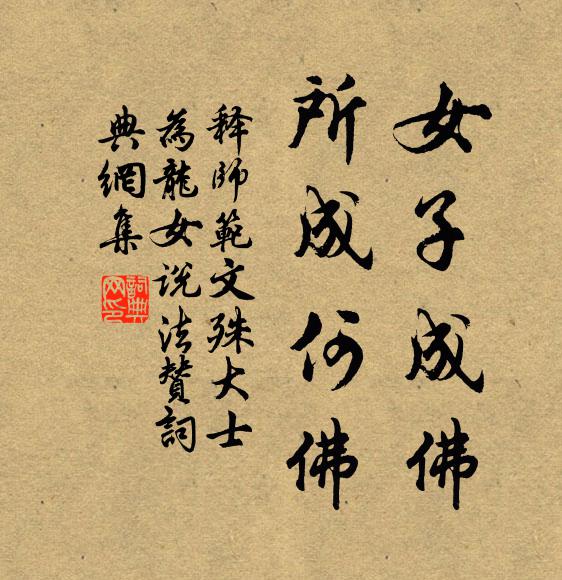 女子成佛
所成何佛
释師範文殊大士
為龍女说法贊詞
典網集
詞典網印